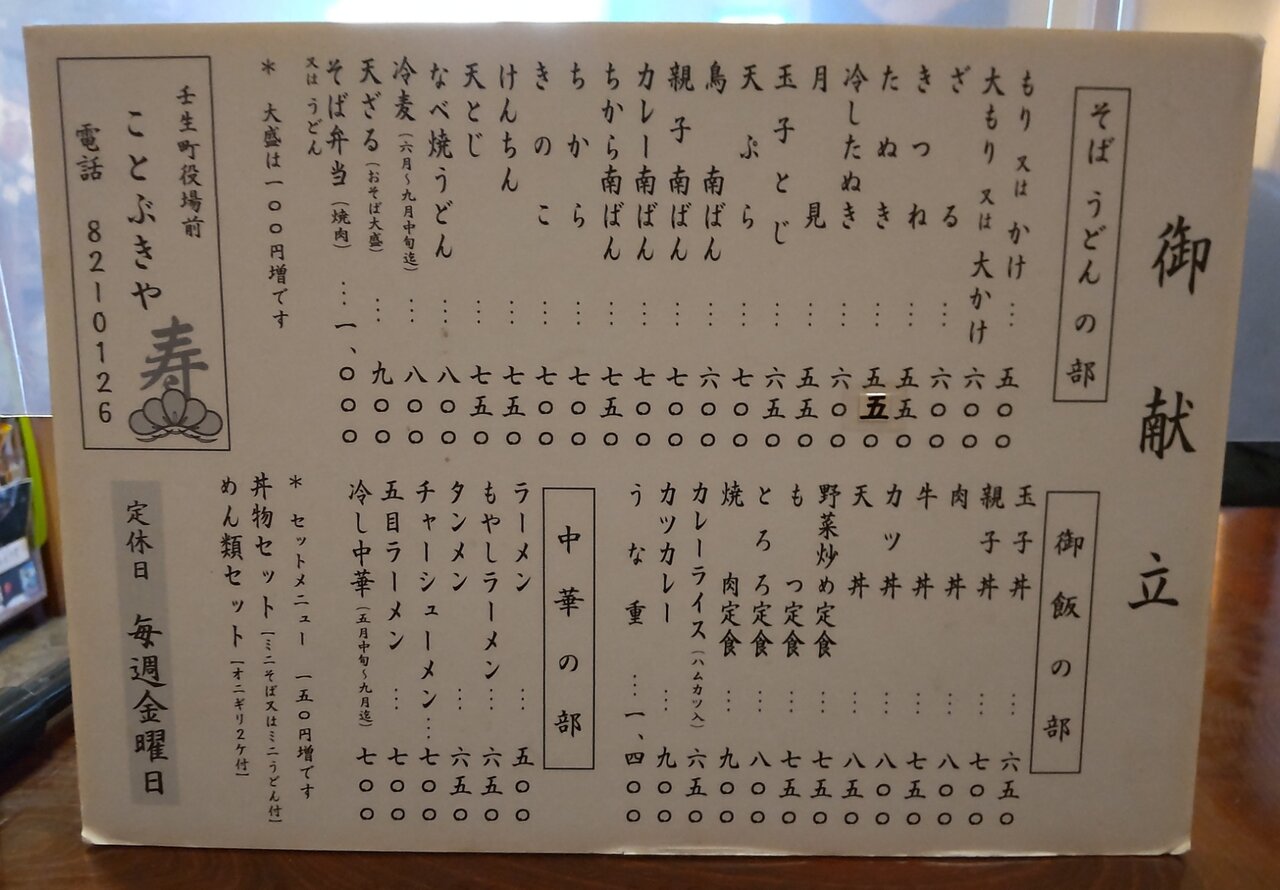 御献立
そば うどんの部
もり 又は かけ … 五〇〇
大もり 又は 大かけ 六〇〇
ざる … 六〇〇
きつね … 五五〇
たぬき … 五五〇
冷したぬき … 六〇〇
月見 … 五五〇
玉子とじ … 六五〇
天ぷら … 七〇〇
鳥南ばん … 六〇〇
親子南ばん … 七〇〇
カレー南ばん … 七〇〇
ちから南ばん … 七五〇
ちから … 七〇〇
きのこ … 七〇〇
けんちん … 七五〇
天とじ … 七五〇
なべ焼うどん … 八〇〇
冷麦(六月〜九月中旬迄) 八〇〇
天ざる(おそば大盛) … 九〇〇
そば弁当(焼肉) … 一、〇〇〇
又は うどん
* 大盛は一〇〇円増です
壬生町役場前
ことぶきや
寿
電話 82-0126
御飯の部
玉子丼 … 六五〇
親子丼 … 七〇〇
肉丼 … 八〇〇
牛丼 … 七五〇
カツ丼 … 八〇〇
天丼 … 八五〇
野菜炒め定食 … 七五〇
もつ定食 … 七五〇
とろろ定食 … 八〇〇
焼肉定食 … 九〇〇
カレーライス(ハムカツ入) 六五〇
カツカレー … 九〇〇
うな重 … 一、四〇〇
中華の部
ラーメン … 五〇〇
もやしラーメン … 六五〇
タンメン … 六五〇
チャーシューメン … 七〇〇
五目ラーメン … 七〇〇
冷し中華(五月中旬〜九月迄) 七〇〇
* セットメニュー 一五〇円増です
丼物セット[ミニそば又はミニうどん付]
めん類セット[オニギリ2ケ付]
定休日 毎週金曜日